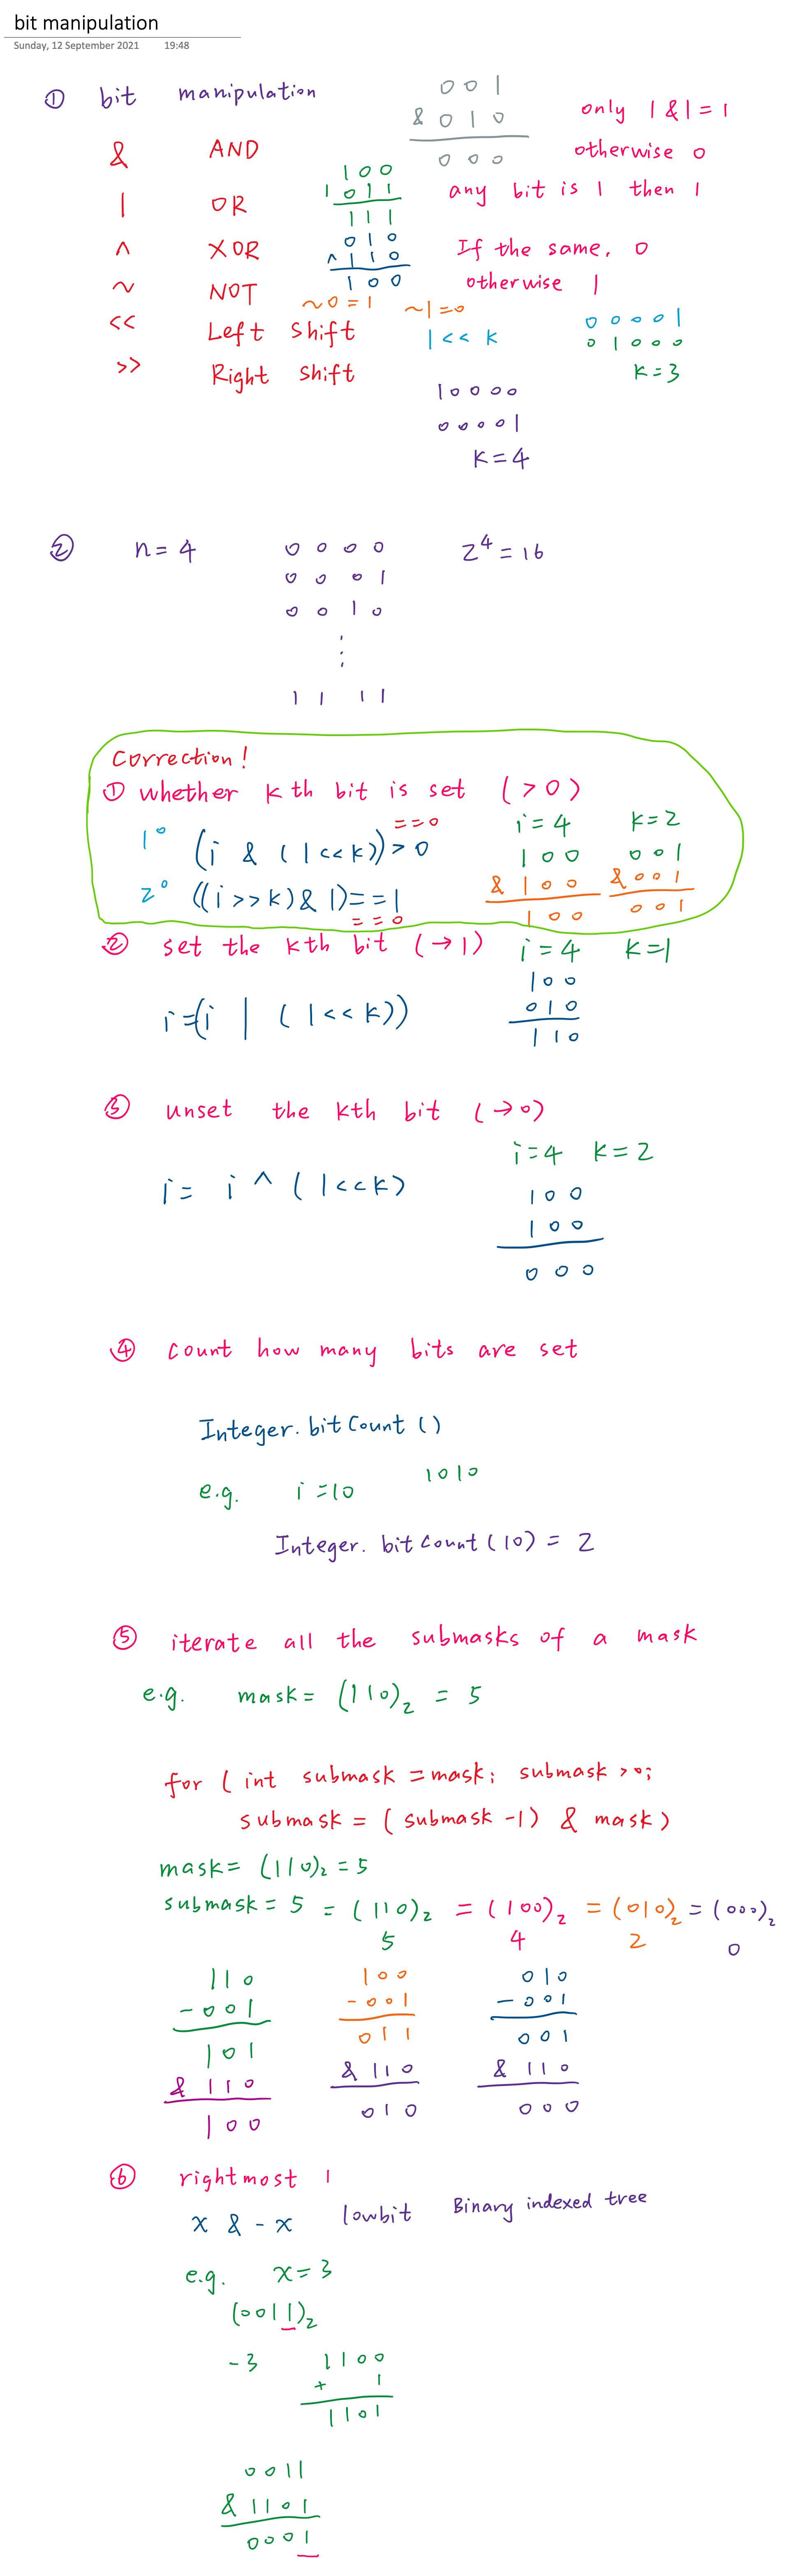 bit manipulation
Sunday, 12 September 2021 19:48
① bit manipulation
0 0 1
& 0 1 0
0 0 0
only 1 & 1 = 1
otherwise 0
& AND
1 0 0
| 0 1 1
1 1 1
any bit is 1 then 1
| OR
0 1 0
^ 1 1 0
1 0 0
If the same, 0
otherwise 1
^ XOR
~ NOT
~0 = 1 ~1 = 0
<< Left shift
1 << k
0 0 0 0 1
0 1 0 0 0
k = 3
>> Right shift
1 0 0 0 0
0 0 0 0 1
k = 4
② n = 4
0 0 0 0
0 0 0 1
0 0 1 0
⋮
1 1 1 1
2⁴ = 16
Correction!
① whether k th bit is set (> 0)
1° (i & (1<<k)) > 0
== 0
2° ((i >> k) & 1) == 1
== 0
i = 4 k = 2
1 0 0 0 0 1
& 1 0 0 & 0 0 1
1 0 0 0 0 1
② set the kth bit (→ 1) i = 4 k = 1
i = (i | (1<<k))
1 0 0
0 1 0
1 1 0
③ unset the kth bit (→ 0)
i = 4 k = 2
i = i ^ (1<<k)
1 0 0
1 0 0
0 0 0
④ count how many bits are set
Integer. bitCount ()
e.g. i = 10 1010
Integer. bitCount (10) = 2
⑤ iterate all the submasks of a mask
e.g. mask = (110)₂ = 5
for ( int submask = mask; submask > 0;
submask = (submask -1) & mask)
mask = (110)₂ = 5
submask = 5 = (110)₂ = (100)₂ = (010)₂ = (000)₂
5 4 2 0
1 1 0 1 0 0 0 1 0
- 0 0 1 - 0 0 1 - 0 0 1
1 0 1 0 1 1 0 0 1
& 1 1 0 & 1 1 0 & 1 1 0
1 0 0 0 1 0 0 0 0
⑥ rightmost 1
x & - x lowbit Binary indexed tree
e.g. x = 3
(0011)₂
-3 1 1 0 0
+ 1
1 1 0 1
0 0 1 1
& 1 1 0 1
0 0 0 1